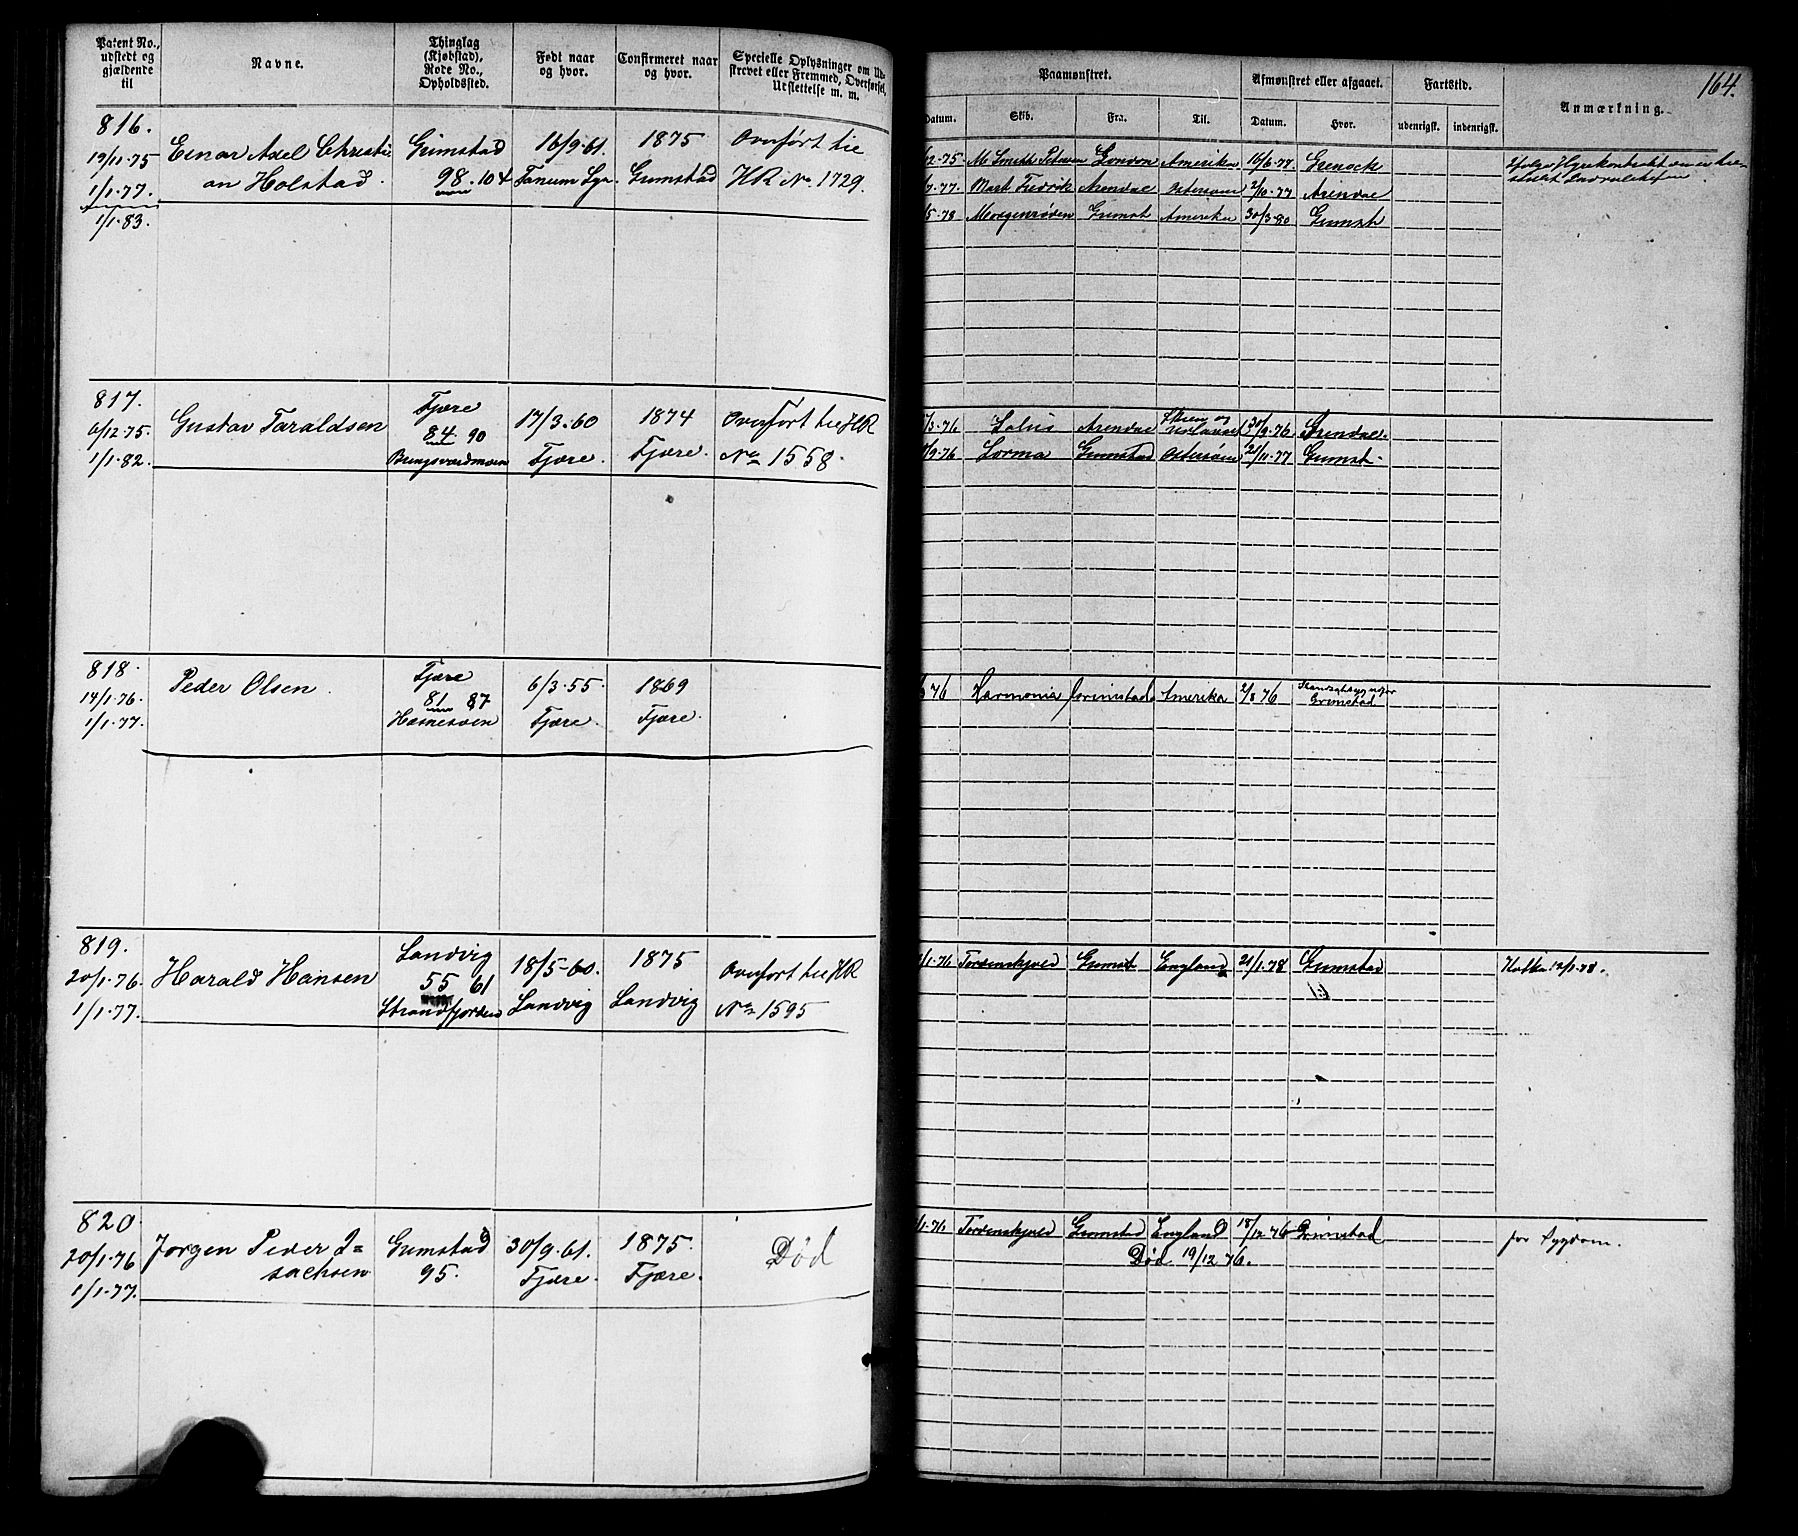 164.
Patent No., udstedt og gjældende til
Navne.
Thinglag (Kjøbstad), Rode No., Opholdssted.
Født naar og hvor.
Confirmeret naar og hvor.
Specielle Oplysninger om Udskrevet eller Fremmed, Overførsel, Udslettelse m. m.
Paamønstret.
Afmønstret eller afgaaet.
Fartstid.
Anmærkning.
Datum. Skib. Fra. Til. Datum. Hvor. udenrigsk. indenrigsk.
816.
19/11-75
1/1-77.
1/1-83.
Einar Axel Christi
an Holstad.
Grimstad
98. 104
16/9-61.
Tanum Sgn.
1875
Grimstad
Overført til
HR No 1729.
12-75 London Amerika 16/6-77
7-77. Fredrik Arendal Østersøen 2/10-77 Arendal
5-78 Morgenrøden Grimst Amerika 30/3-80 Grimst
817.
6/12-75.
1/1-82.
Gustav Taraldsen
Fjære
84. 90
17/3-60
Fjære.
1874
Fjære.
Overført til HR
No 1558.
3-76 Arendal 9-76 Arendal.
/9-76 Lorma Grimstad Østersøen 21/11-77 Grimst.
818.
14/1-76.
1/1-77.
Peder Olsen.
Fjære
81 87
6/3-55.
Fjære.
1869
Fjære.
76 Harmonia Grimstad Amerika 2/8 76
Grimstad
819.
20/1-76.
1/1-77.
Harald Hansen
Landvig
55 61
Strandfjorden
18/5-60.
Landvig
1875
Landvig
Overført til HR
No 1595
/1-76 Tordenskjold Grimst England 21/1-78 Grimstad
12/1-78.
820.
20/1-76
1/1-77.
Jørgen Peder I=
sachsen
Grimstad
95.
30/9-61.
Fjære.
1875.
Fjære.
Død
/1-76 Tordenskjold Grimstad England 18/12-76 Grimstad
for Sygdom.
Død 19/12 76.